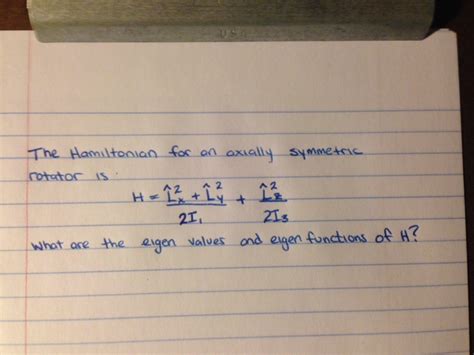 The Hamiltonian for an axially symmetric
rotator is
H = (L̂x² + L̂y²)/2I₁ + L̂z²/2I₃
What are the eigen values and eigen functions of H?